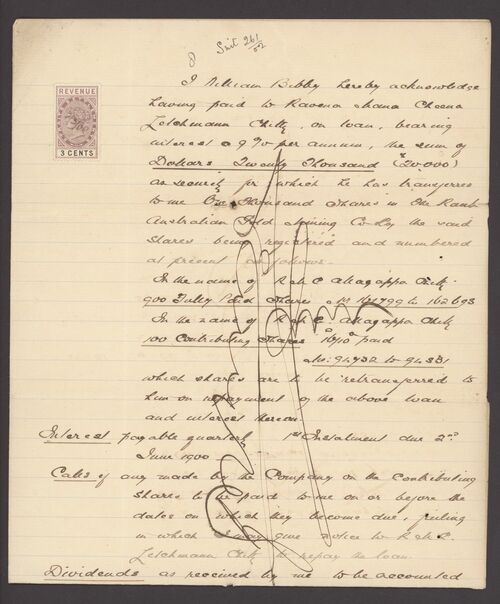 8 Suit 261/02
REVENUE
3 CENTS
I William Bibby hereby acknowledge
having paid to Kavena Shana Cheena
Letchmann Chitty, on loan, bearing
interest @ 9% per annum, the sum of
Dollars Twenty Thousand ($20.000)
as security for which he has transferred
to me One Thousand Shares in the Raub
Australian Gold Mining Co Ltd the said
shares being registered and numbered
at present as follows
In the name of C Allagappa Chitty
900 Fully Paid Shares
In the name of C Allagappa Chitty
100 Contributing Shares paid
which shares are to be retransferred to
him on repayment of the above loan
and interest thereon
Interest payable quarterly 1st Instalment due 2nd
June 1900
Calls if any made by the Company on the Contributing
Shares to be paid to me on or before the
dates on which they become due, failing
in which I may give notice to
Letchmann Chitty to repay the loan.
Dividends as received by me to be accounted